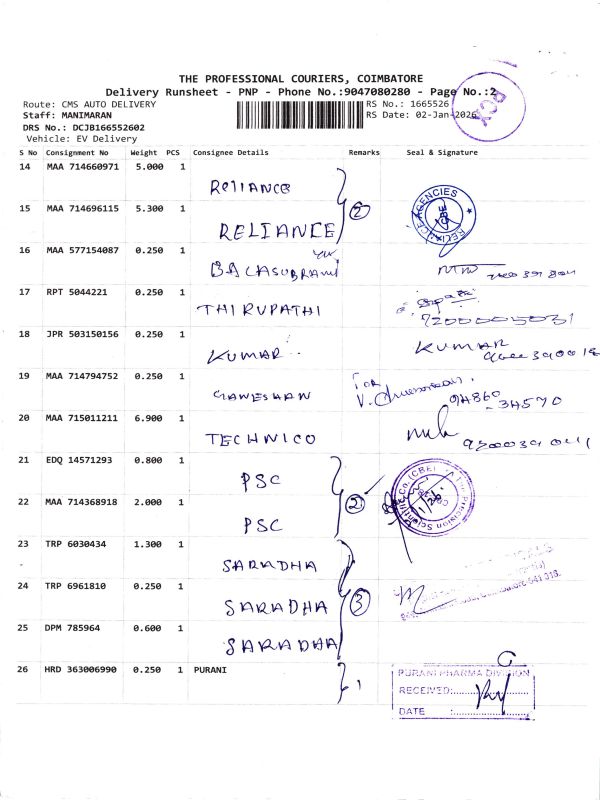 THE PROFESSIONAL COURIERS, COIMBATORE
Delivery Runsheet - PNP - Phone No.:9047080280 - Page No.:2
Route: CMS AUTO DELIVERY
RS No.: 1665526
Staff: MANIMARAN
RS Date: 02-Jan-2026
DRS No.: DCJB166552602
Vehicle: EV Delivery
S No Consignment No Weight PCS Consignee Details Remarks Seal & Signature
14 MAA 714660971 5.000 1 RELIANCE
15 MAA 714696115 5.300 1 RELIANCE 2
RELIANCE AGENCIES CBE
16 MAA 577154087 0.250 1
17 RPT 5044221 0.250 1 THIRUPATHI
18 JPR 503150156 0.250 1 KUMAR KUMAR
19 MAA 714794752 0.250 1 GANESHAN For
20 MAA 715011211 6.900 1 TECHNICO
21 EDQ 14571293 0.800 1 PSC
22 MAA 714368918 2.000 1 PSC 2
The Precision Scientific Co. (CBE)
23 TRP 6030434 1.300 1 SARADHA
24 TRP 6961810 0.250 1 SARADHA 3
25 DPM 785964 0.600 1 SARADHA
26 HRD 363006990 0.250 1 PURANI 1
PURANI PHARMA DIVISION
RECEIVED:
DATE :